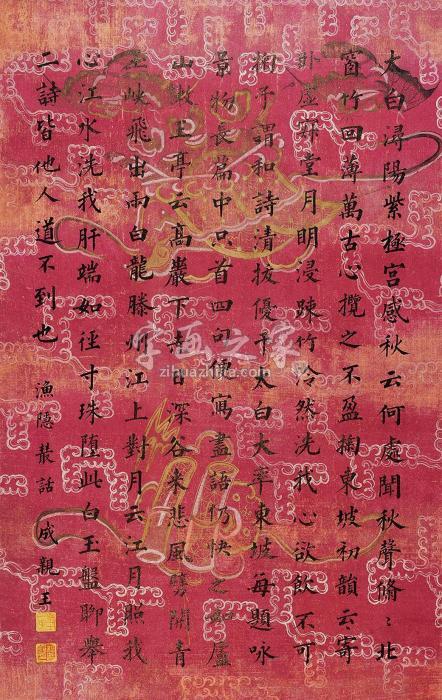 太白潯陽紫極宮感秋云何處聞秋聲翛〻北
窗竹回薄萬古心攬之不盈掬東坡和韻云寄
卧虛寂堂月明浸疎竹泠然洗我心欲飲不可
掬予謂和詩清拔優于太白大率東坡每題咏
景物長篇中只首四句便寫盡語仿快之如廬
山漱玉亭云高巖下赤日深谷来悲風劈開青
玉峽飛出兩白龍滕州江上對月云江月照我
心江水洗我肝端如徑寸珠墮此白玉盤聊舉
二詩皆他人道不到也
漁隱叢話 成親王
字画之家
zihuazhijia.com